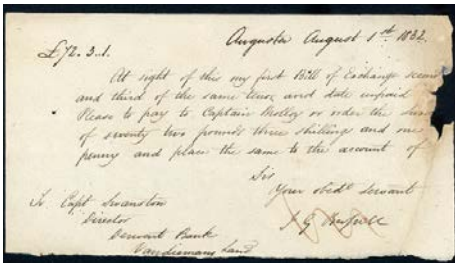 Augusta August 1st. 1832.
£72.3.1.
At sight of this my first Bill of Exchange second
and third of the same tenor and date unpaid
Please to pay to Captain Molloy or order the sum
of seventy two pounds three shillings and one
penny and place the same to the account of
Sir
Your obedt. servant
J G Bussell
To Capt Swanston
Director
Derwent Bank
Vandiemans Land